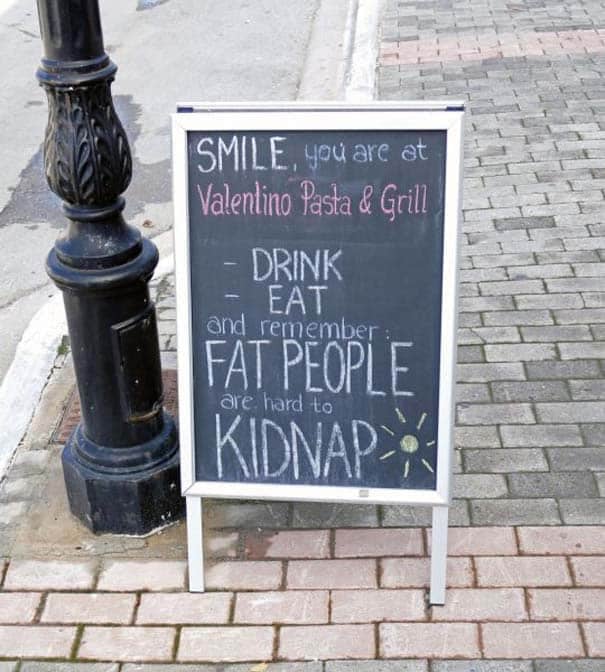 SMILE, you are at
Valentino Pasta & Grill
- DRINK
- EAT
and remember:
FAT PEOPLE
are hard to
KIDNAP